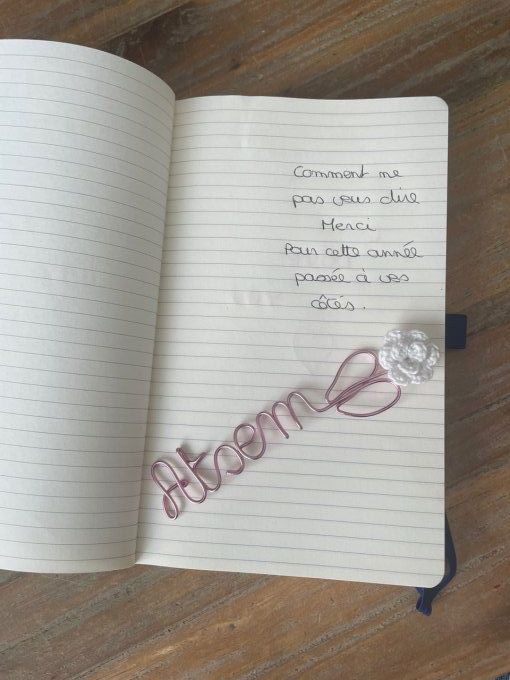 Comment ne
pas vous dire
Merci
Pour cette année
passée à vos
côtés.
Atsem